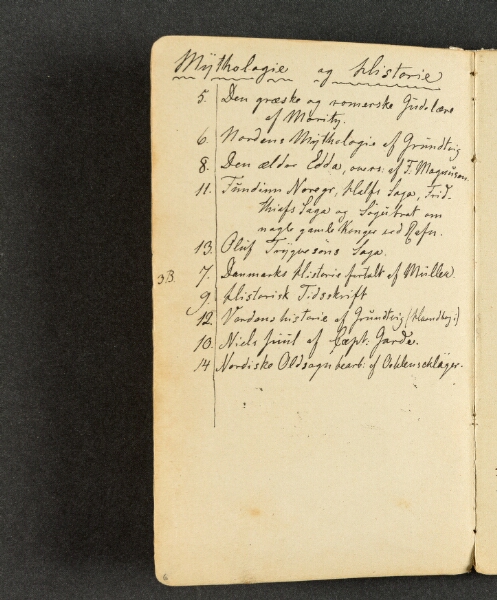 Mÿthologie og Historie
5. Den græske og romerske Gudelære
af Moritz.
6. Nordens Mÿthologie af Grundtvig
8. Den ældre Edda, overs. af F. Magnusen.
11. Fundinn Noregr, Halfs Saga, Frid-
thiofs Saga og Sögubrot om
nogle gamle Konger ved Rafn.
13. Oluf Trÿgvesöns Saga.
3B. 7. Danmarks Historie fortalt af Müller
9. Historisk Tidsskrift
12. Verdenshistorie af Grundtvig (Haandbog:)
10. Niels Juul af Capt: Garde.
14 Nordiske Oldsagn bearb: af Oehlenschläger.
6